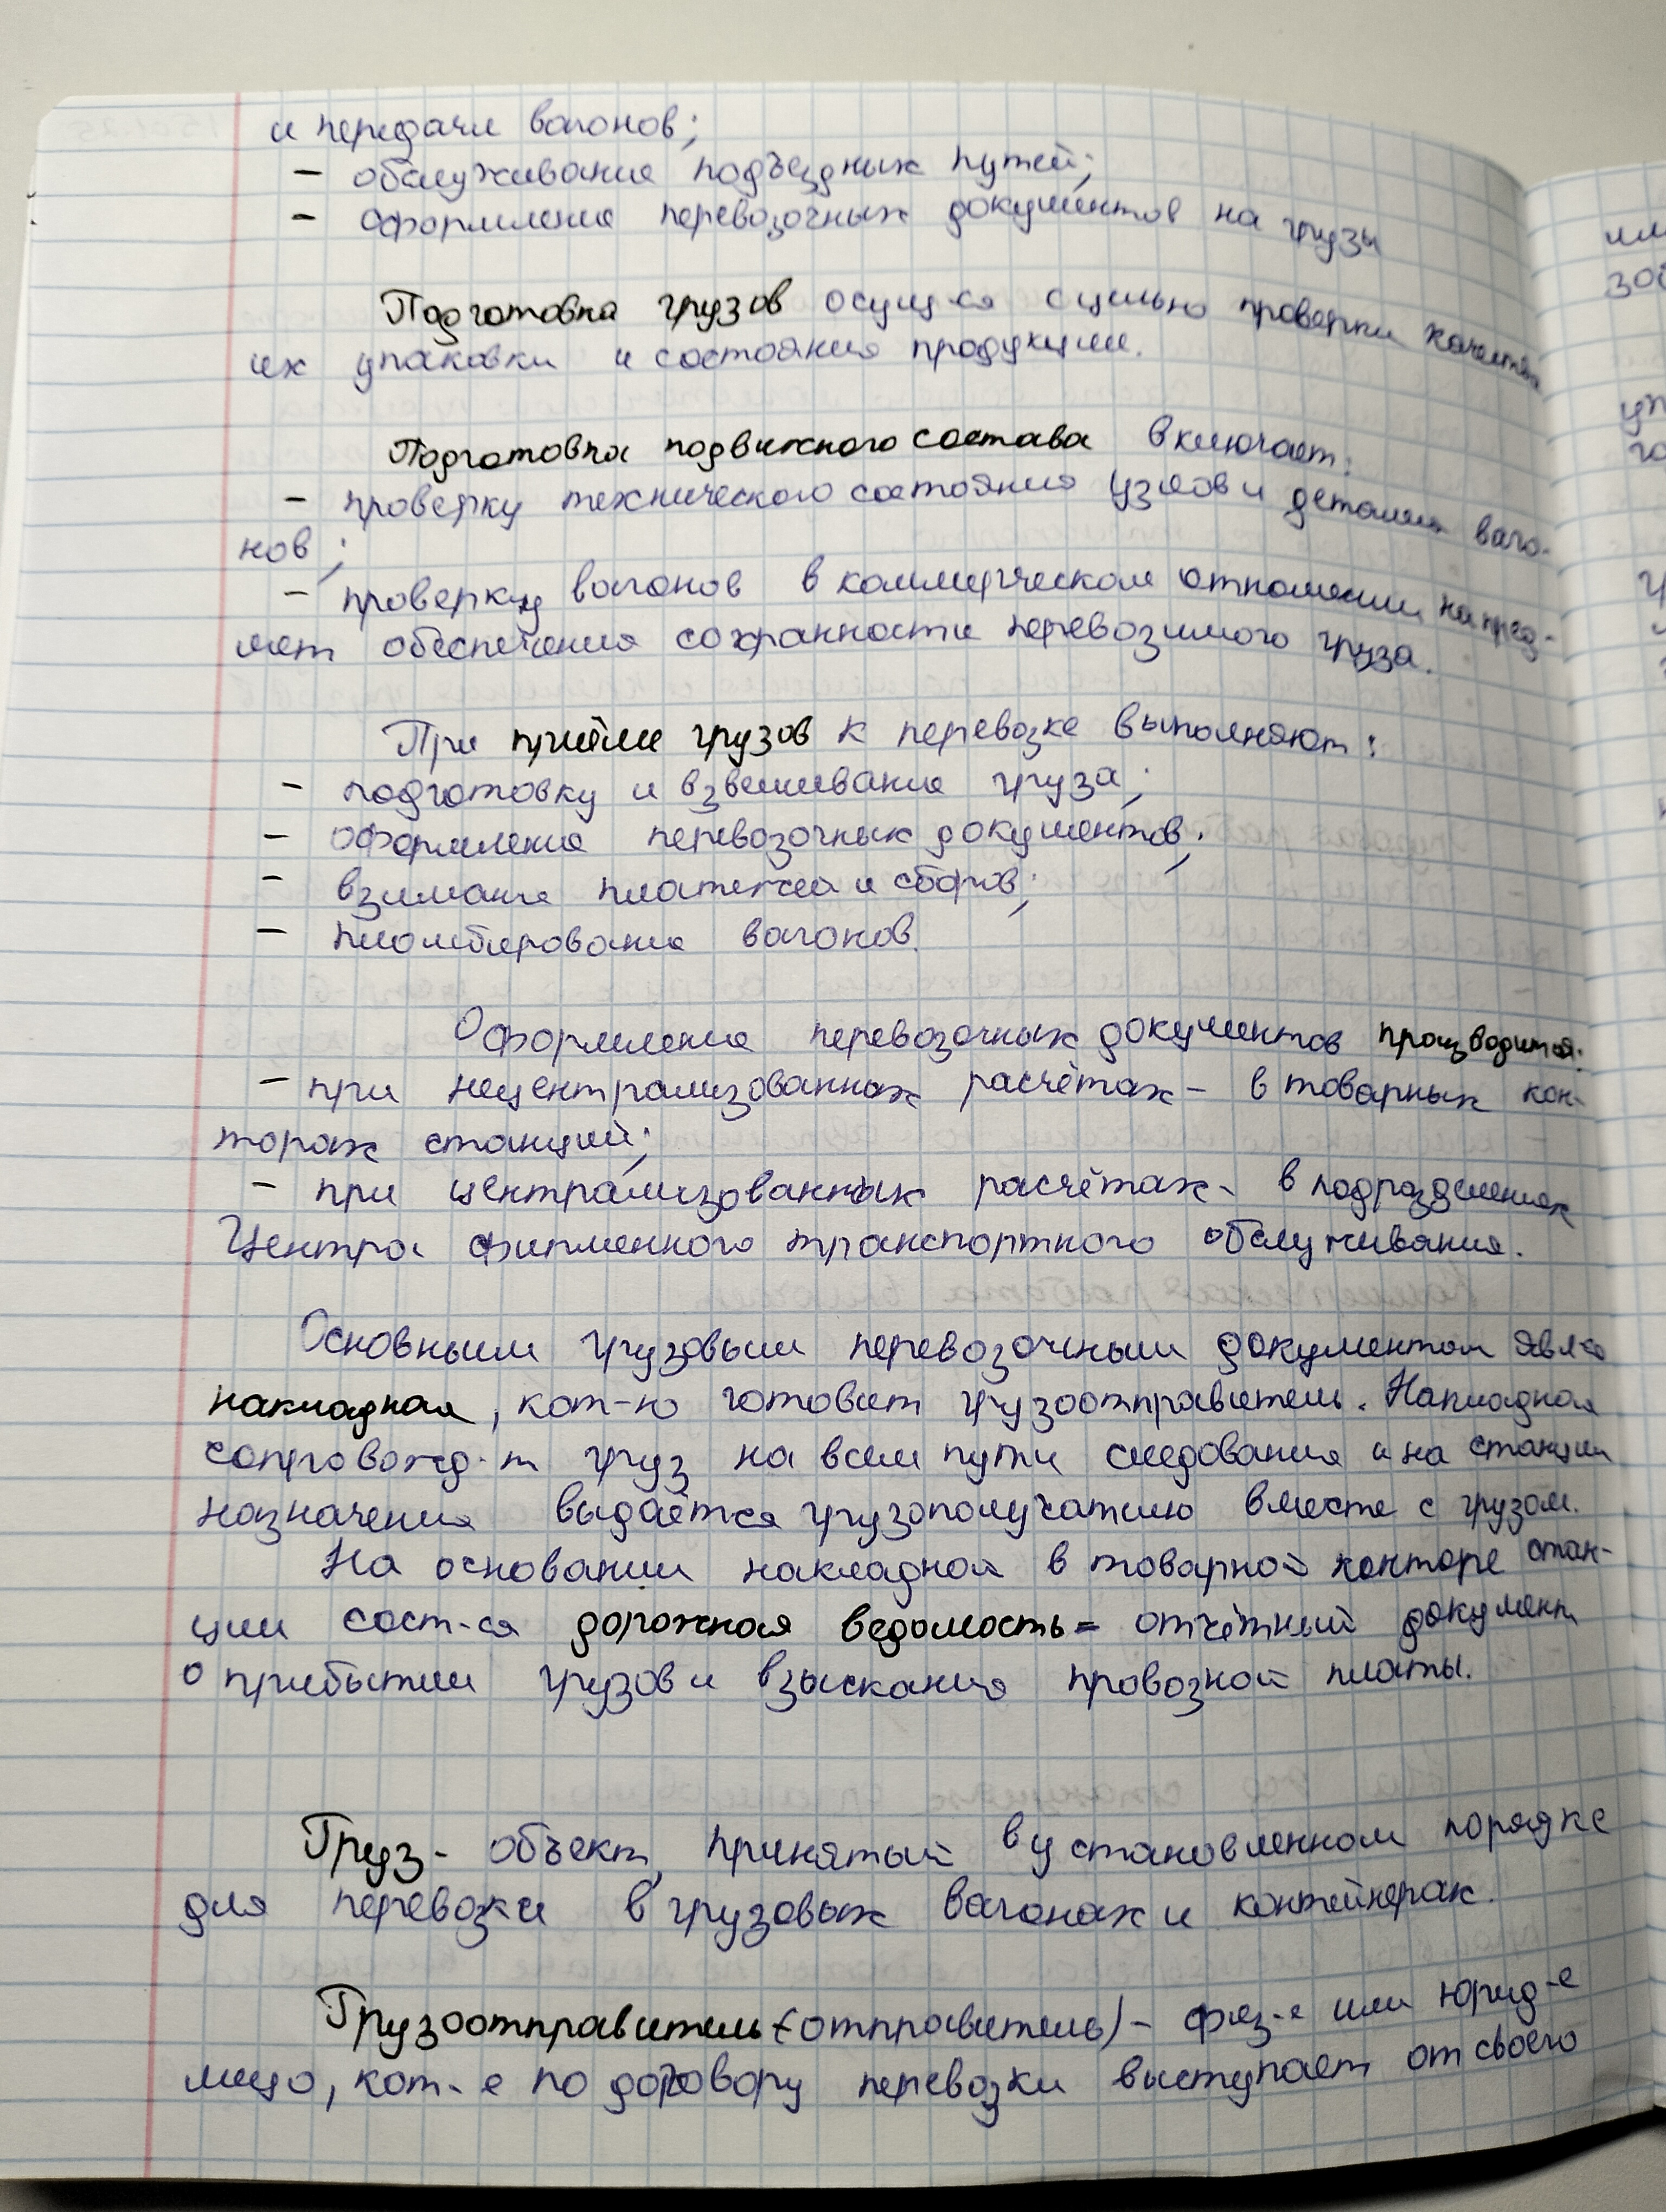 и передачи вагонов;
- обслуживание подъездных путей;
- оформление перевозочных документов на грузы
Подготовка грузов осущ-ся с целью проверки качества
их упаковки и состояния продукции.
Подготовка подвижного состава включает:
- проверку технического состояния узлов и деталей ваго-
нов;
- проверку вагонов в коммерческом отношении на пред-
мет обеспечения сохранности перевозимого груза.
При приёме грузов к перевозке выполняют:
- подготовку и взвешивание груза;
- оформление перевозочных документов;
- взимание платежей и сборов;
- пломбирование вагонов.
Оформление перевозочных документов производится:
- при нецентрализованных расчётах - в товарных кон-
торах станций;
- при централизованных расчётах - в подразделениях
Центра фирменного транспортного обслуживания.
Основным грузовым перевозочным документом явл-ся
накладная, кот-ю готовит грузоотправитель. Накладная
сопровожд-т груз на всем пути следования и на станции
назначения выдаётся грузополучателю вместе с грузом.
На основании накладной в товарной конторе стан-
ции сост-ся дорожная ведомость = отчётный документ
о прибытии грузов и взыскания провозной платы.
Груз - объект, принятый в установленном порядке
для перевозки в грузовых вагонах и контейнерах.
Грузоотправитель (отправитель) - физ-е или юрид-е
лицо, кот-е по договору перевозки выступает от своего